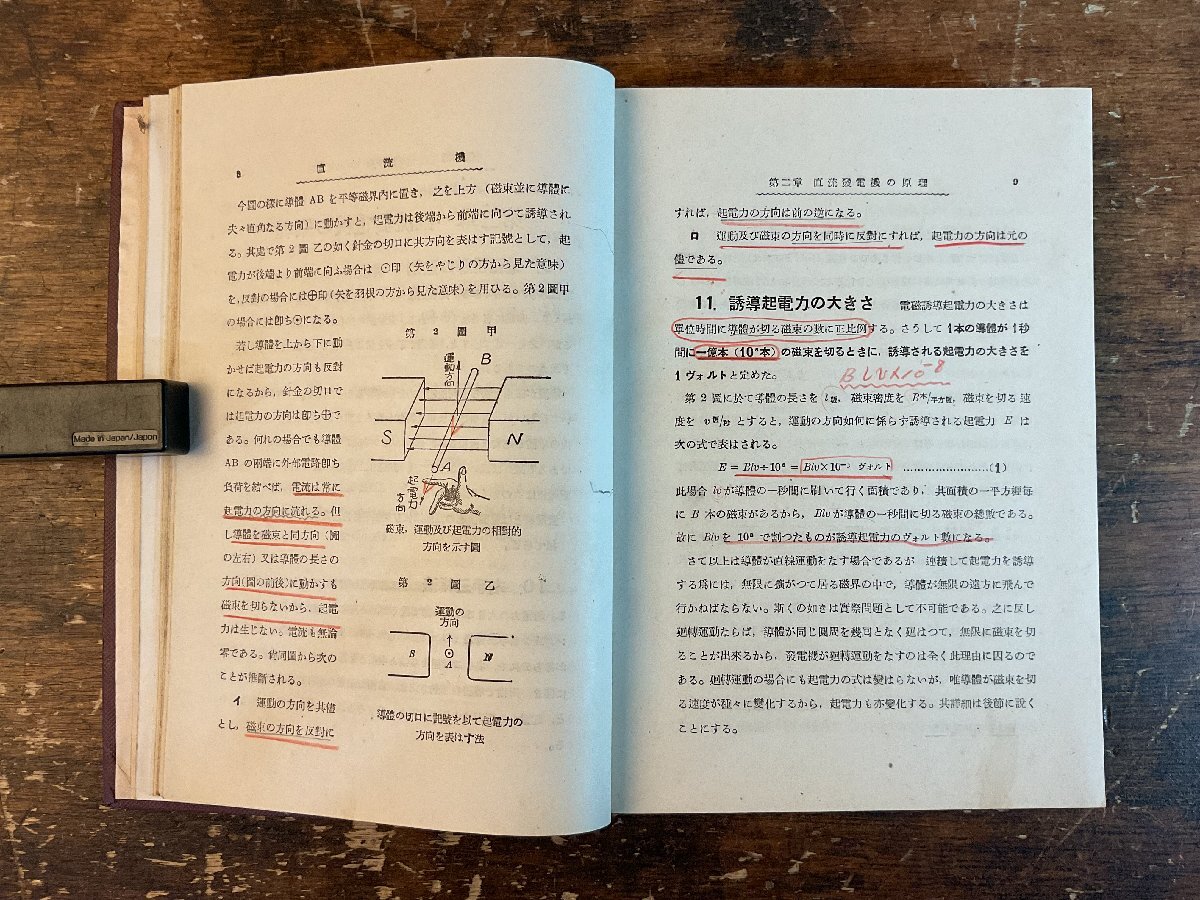 8 直流機
今圖の樣に導體 AB を平等磁界內に置き，之を上方（磁束並に導體に
夫々直角なる方向）に動かすと，起電力は後端から前端に向つて誘導され
る。其處で第2圖 乙の如く針金の切口に其方向を表はす記號として，起
電力が後端より前端に向ふ場合は ⊙印（矢をやじりの方から見た意味）
を，反對の場合には⊕印（矢を羽根の方から見た意味）を用ひる。第2圖甲
の場合には卽ち⊙になる。
若し導體を上から下に動
かせば起電力の方向も反對
になるから，針金の切口で
は起電力の方向は卽ち⊕で
ある。何れの場合でも導體
AB の兩端に外部電路卽ち
負荷を結べば，電流は常に
起電力の方向に流れる。但
し導體を磁束と同方向（圖
の左右）又は導體の長さの
方向（圖の前後）に動かすも
磁束を切らないから，起電
力は生じない。電流も無論
零である。尙同圖から次の
ことが推斷される。
イ 運動の方向を其儘
とし，磁束の方向を反對に
第2圖甲
運動方向
B
S
N
A
起電力
方向
磁束，運動及び起電力の相對的
方向を示す圖
第2圖乙
運動の
方向
S
A
N
導體の切口に記號を以て起電力の
方向を表はす法
Made in Japan/Japon
第二章 直流發電機の原理 9
すれば，起電力の方向は前の逆になる。
ロ 運動及び磁束の方向を同時に反對にすれば，起電力の方向は元の
儘である。
11. 誘導起電力の大きさ 電磁誘導起電力の大きさは
單位時間に導體が切る磁束の數に正比例する。さうして1本の導體が1秒
間に一億本（10⁸本）の磁束を切るときに，誘導される起電力の大きさを
1ヴォルトと定めた。
BlV×10⁻⁸
第2圖に於て導體の長さを l糎，磁束密度を B本/平方糎，磁束を切る速
度を v糎/秒 とすると，運動の方向如何に係らず誘導される起電力 E は
次の式で表はされる。
E = Blv÷10⁸ = Blv×10⁻⁸ ヴォルト ……………………(1)
此場合 lv が導體の一秒間に刷いて行く面積であり，其面積の一平方糎每
に B 本の磁束があるから，Blv が導體の一秒間に切る磁束の總數である。
故に Blv を 10⁸ で割つたものが誘導起電力のヴォルト數になる。
さて以上は導體が直線運動をなす場合であるが 連續して起電力を誘導
する爲には，無限に擴がつて居る磁界の中で，導體が無限の遠方に飛んで
行かねばならない。斯くの如きは實際問題として不可能である。之に反し
廻轉運動ならば，導體が同じ圓周を幾囘となく廻はつて，無限に磁束を切
ることが出來るから，發電機が廻轉運動をなすのは全く此理由に因るので
ある。廻轉運動の場合にも起電力の式は變はらないが，唯導體が磁束を切
る速度が種々に變化するから，起電力も亦變化する。其詳細は後節に說く
ことにする。